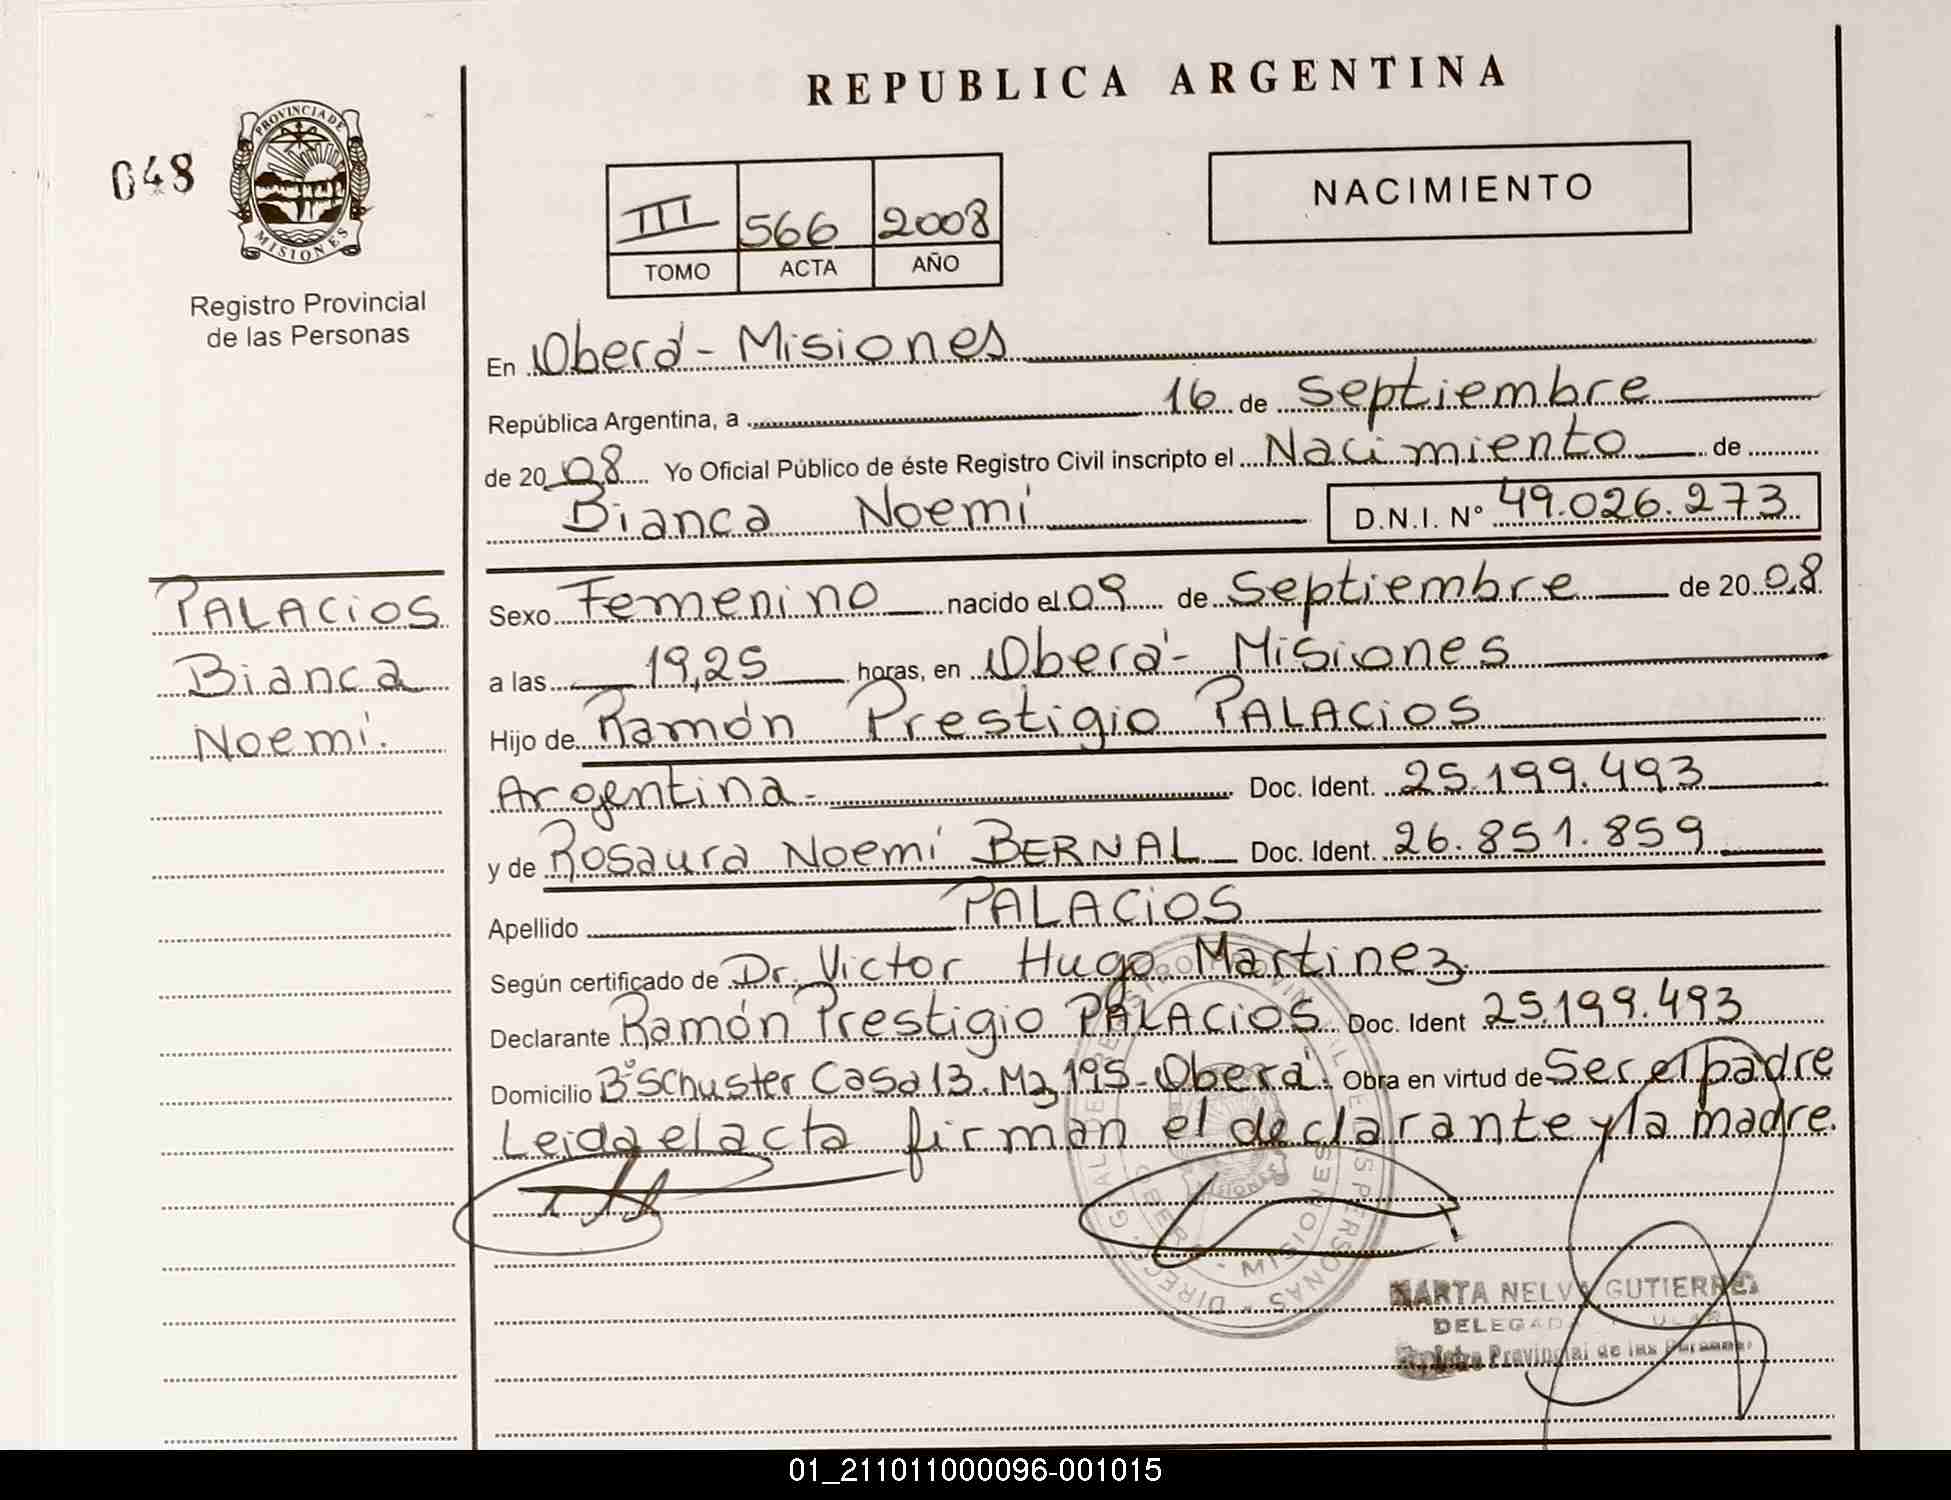 REPUBLICA ARGENTINA
048
PROVINCIA DE
MISIONES
Registro Provincial
de las Personas
III 566 2008
TOMO ACTA AÑO
NACIMIENTO
En Oberá - Misiones
República Argentina, a 16 de Septiembre
de 2008 Yo Oficial Público de éste Registro Civil inscripto el Nacimiento de
Bianca Noemí D.N.I. Nº 49.026.273
PALACIOS
Bianca
Noemí.
Sexo Femenino nacido el 09 de Septiembre de 2008
a las 19,25 horas, en Oberá - Misiones
Hijo de Ramón Prestigio PALACIOS
Argentina.- Doc. Ident. 25.199.493
y de Rosaura Noemí BERNAL Doc. Ident. 26.851.859
Apellido PALACIOS
Según certificado de Dr. Victor Hugo Martinez
Declarante Ramón Prestigio PALACIOS Doc. Ident 25.199.493
Domicilio Bº Schuster Casa 13. Mz 195 - Oberá. Obra en virtud de Ser el padre
Leida el acta firman el declarante y la madre.
MISIONES
MARTA NELVA GUTIERREZ
DELEGADA
Registro Provincial de las Personas
01_211011000096-001015